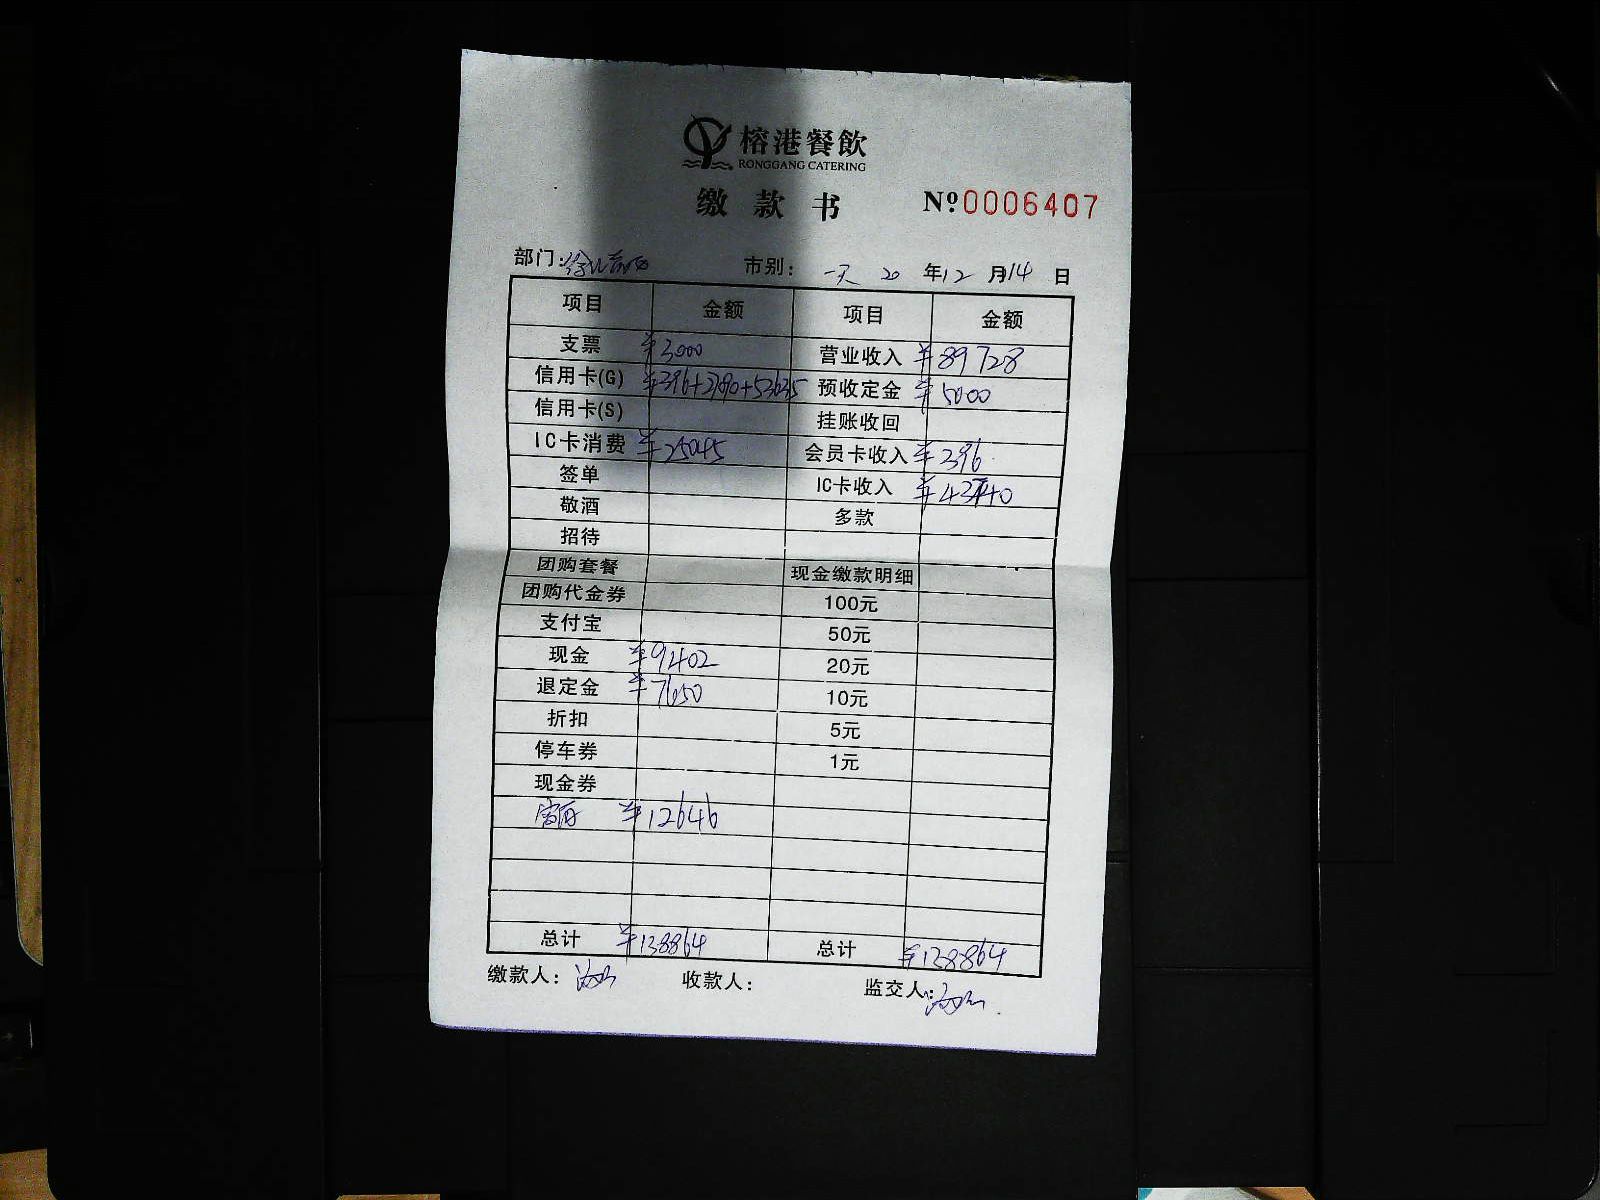 榕港餐飲
RONGGANG CATERING
缴款书 Nº 0006407
部门: 市别: 一天 20 年 12 月 14 日
项目 金额 项目 金额
支票 ¥3000 营业收入 ¥89728
信用卡(G) ¥396+27090+53635 预收定金 ¥5000
信用卡(S) 挂账收回
IC卡消费 ¥25045 会员卡收入 ¥396
签单 IC卡收入 ¥43740
敬酒 多款
招待
团购套餐 现金缴款明细
团购代金券 100元
支付宝 50元
现金 ¥9402 20元
退定金 ¥7650 10元
折扣 5元
停车券 1元
现金券
¥12646
总计 ¥138864 总计 ¥138864
缴款人: 收款人: 监交人: